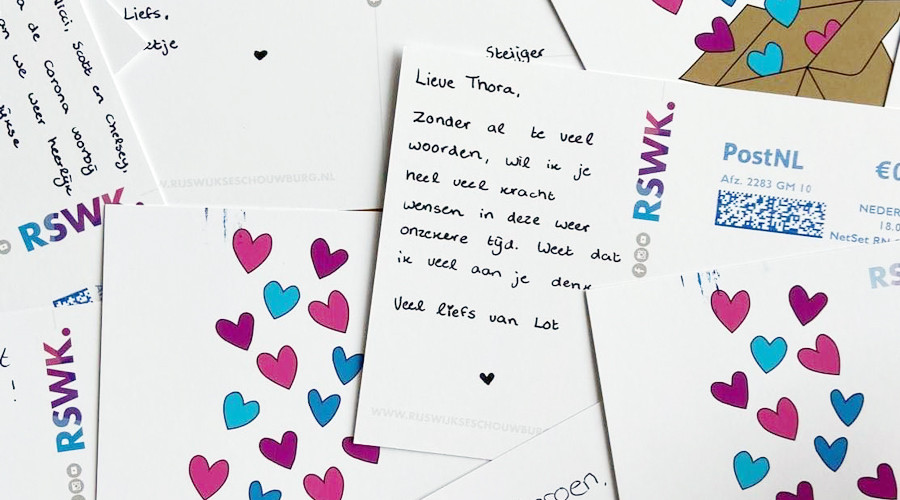 Liefs,
etje
Nicci, Scott en Chelsey,
corona voorbij
we weer heerlijk
RSWK.
WWW.RIJSWIJKSESCHOUWBURG.NL
Steijger
Lieve Thora,
Zonder al te veel
woorden, wil ik je
heel veel kracht
wensen in deze weer
onzekere tijd. Weet dat
ik veel aan je denk
Veel liefs van Lot
WWW.RIJSWIJKSESCHOUWBURG
RSWK.
PostNL
€0
Afz. 2283 GM 10
NEDER
18.0
NetSet RN
RSWK.
RS
roen,